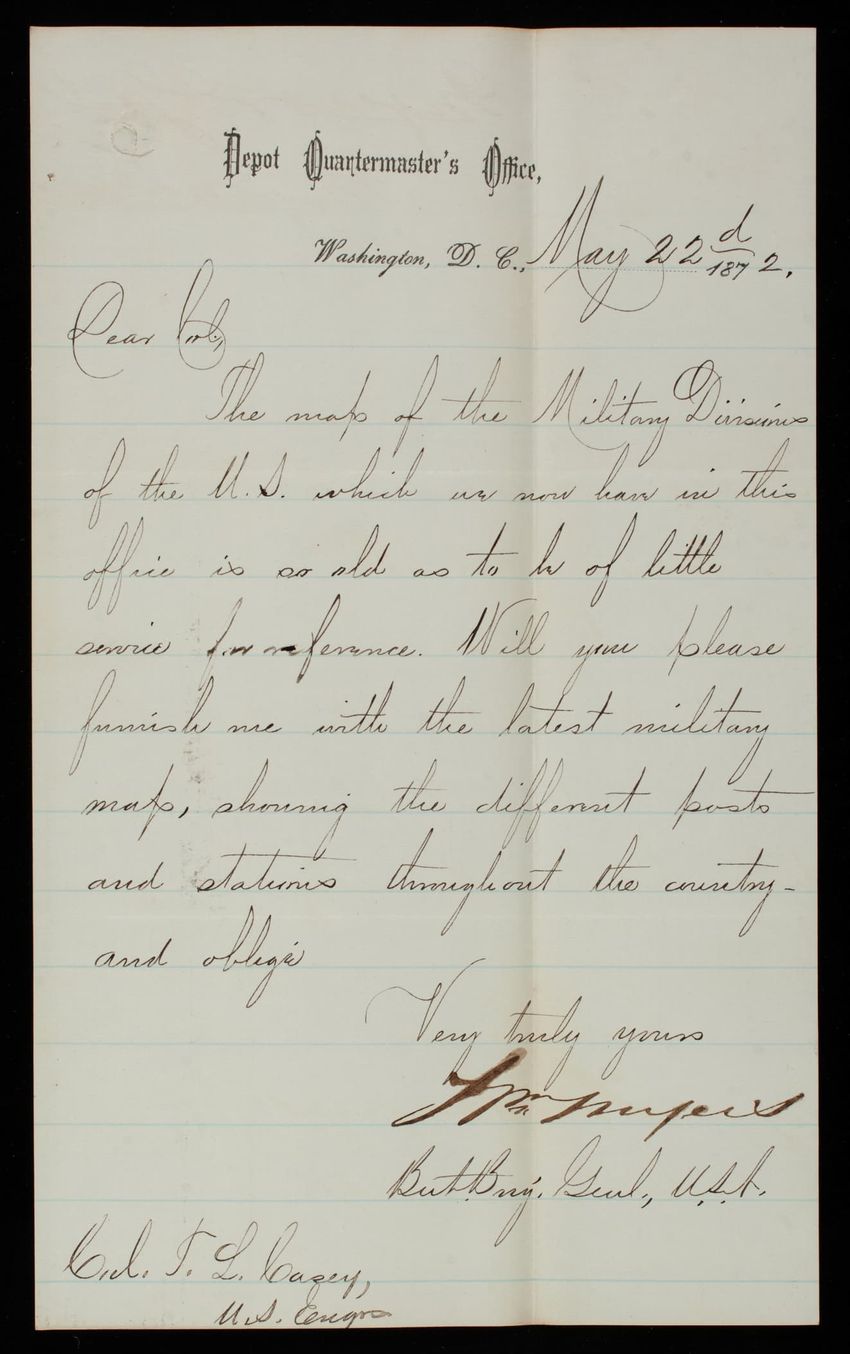 Depot Quartermaster's Office,
Washington, D. C., May 22d 1872.
Dear Col,
The map of the Military Divisions
of the U.S. which we now have in this
office is so old as to be of little
service for reference. Will you please
furnish me with the latest military
map, showing the different posts
and stations throughout the country-
and oblige
Very truly yours
Wm Myers
Bvt. Brig. Genl., U.S.A.
Col. T. L. Casey,
U.S. Engrs